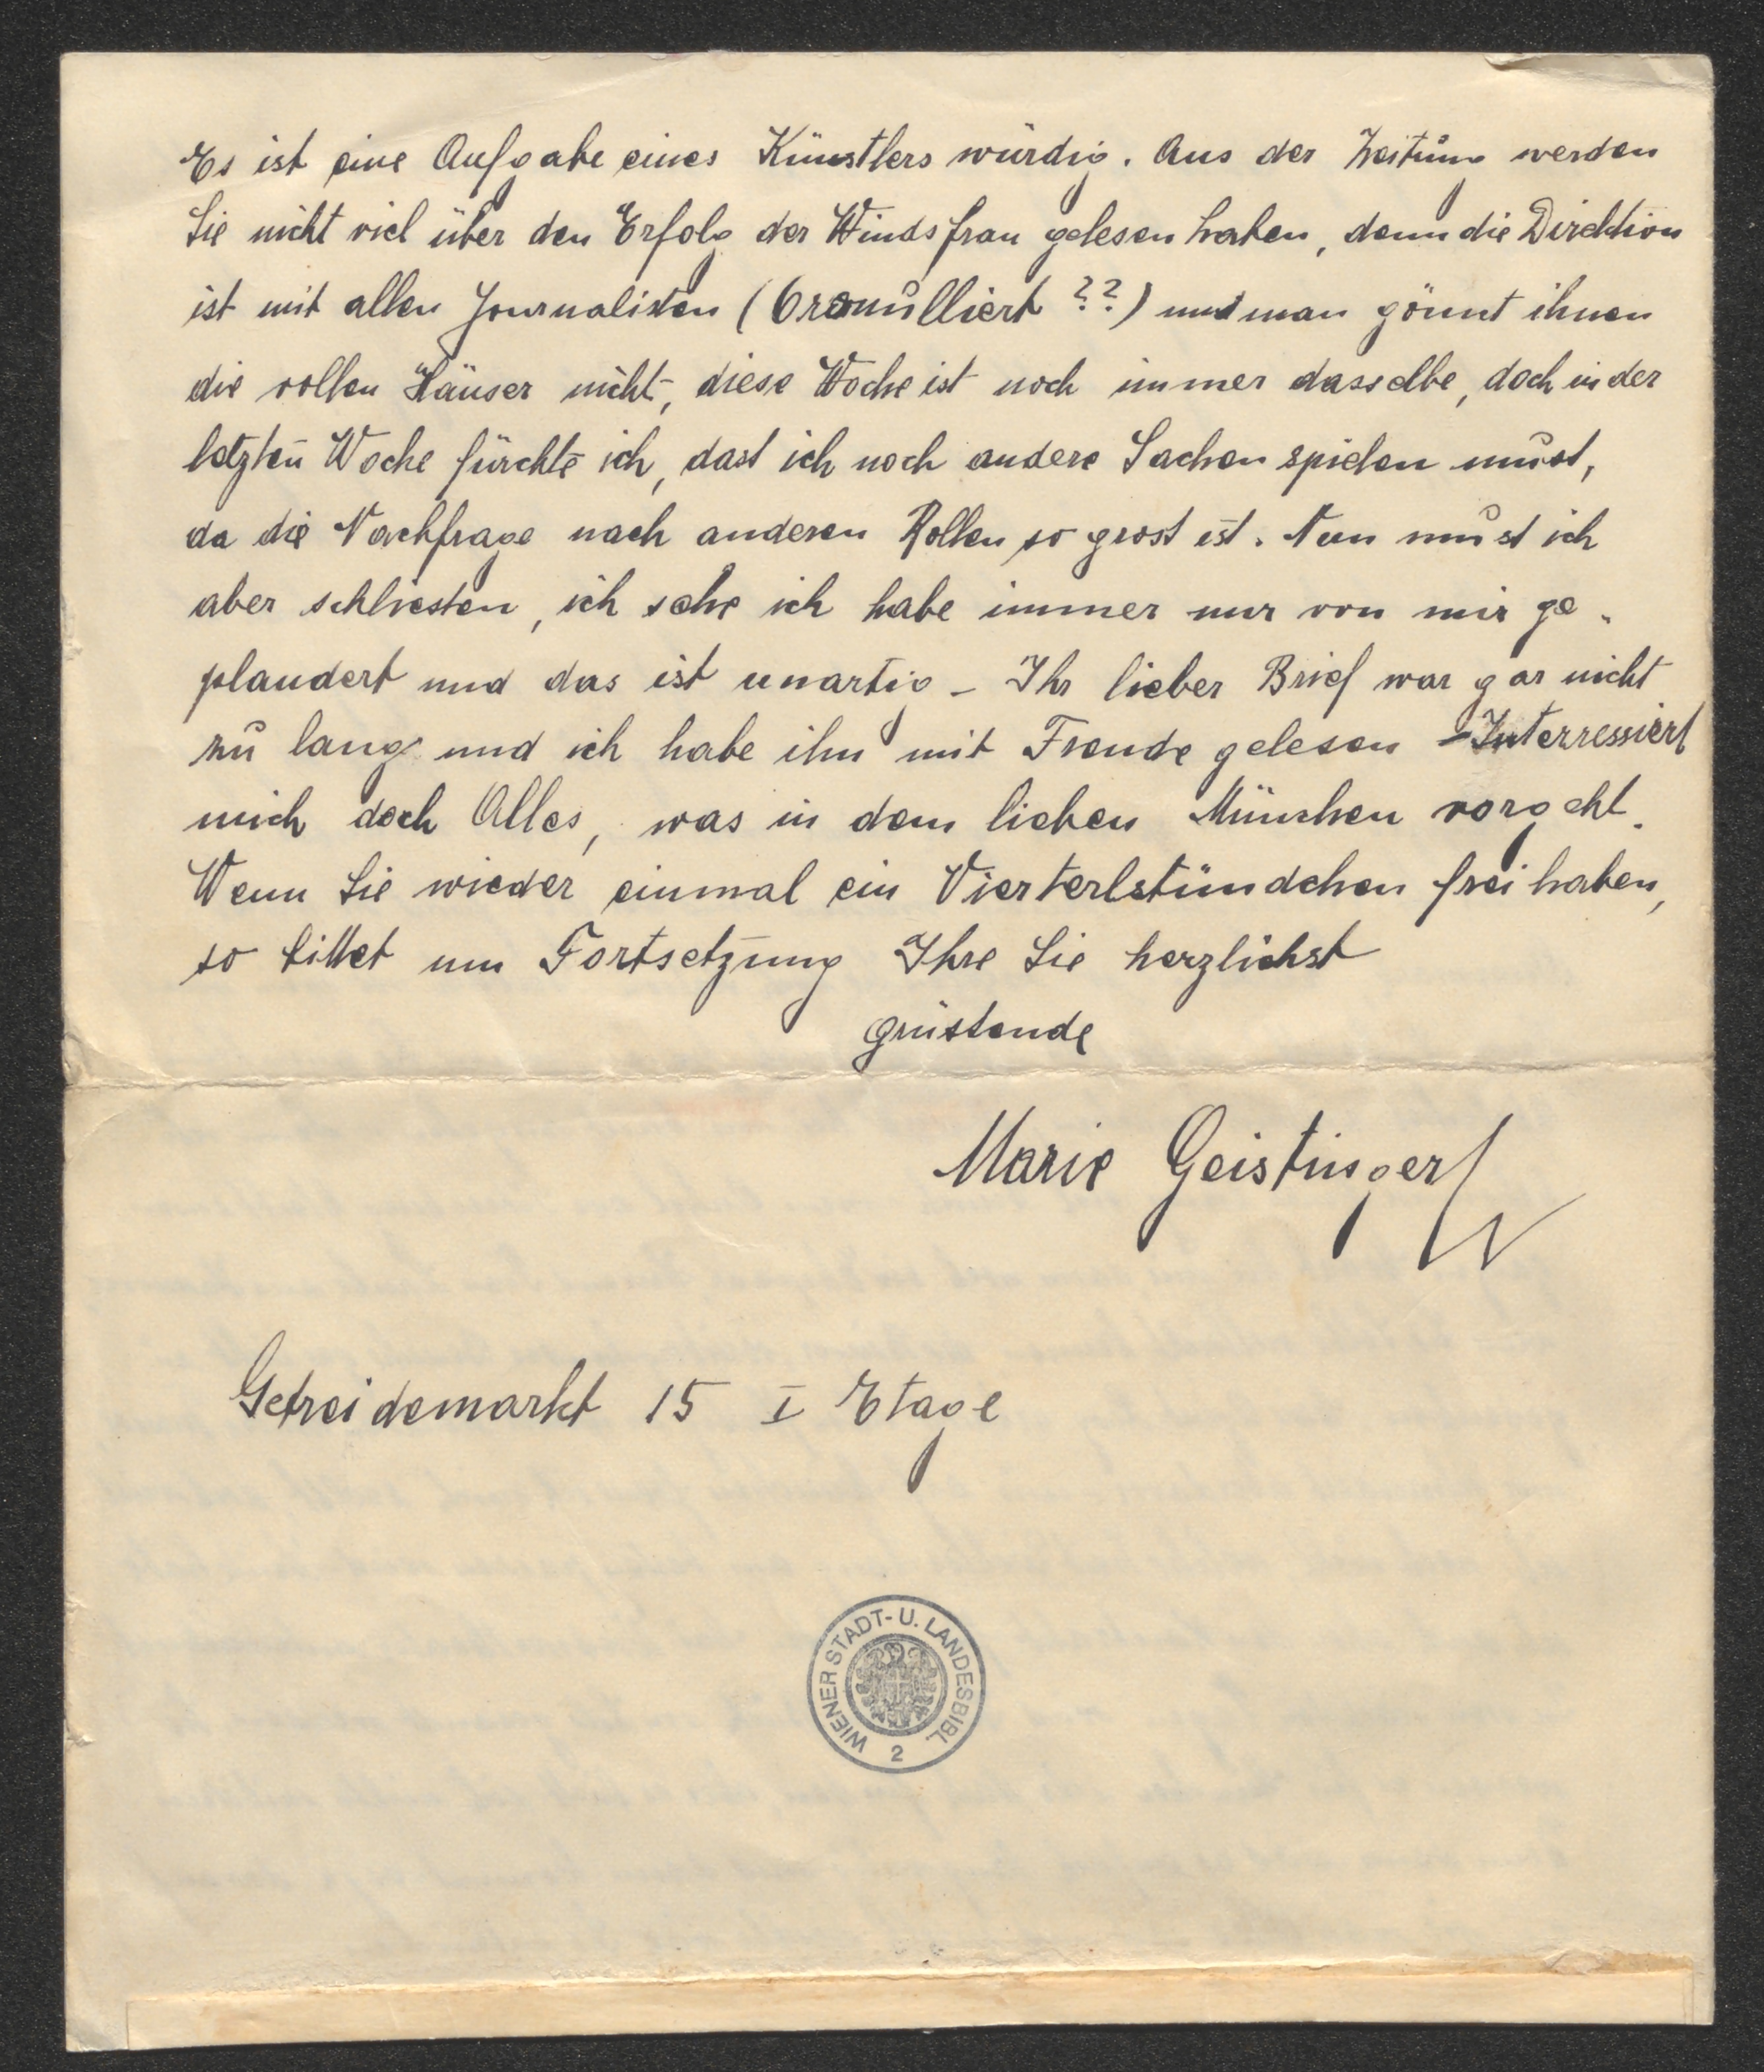 Es ist eine Aufgabe eines Künstlers würdig. Aus der Zeitung werden
Sie nicht viel über den Erfolg der Windsfrau gelesen haben, denn die Direktion
ist mit allen Journalisten (brouulliert ??) und man gönnt ihnen
die vollen Häuser nicht, diese Woche ist noch immer dasselbe, doch in der
letzten Woche fürchte ich, dast ich noch andere Sachen spielen must,
da die Nachfrage nach anderen Rollen so grost ist. Nun must ich
aber schliesten, ich sehe ich habe immer nur von mir ge-
plaudert und das ist unartig - Ihr lieber Brief war gar nicht
zu lang und ich habe ihn mit Freude gelesen - Interressiert
mich doch Alles, was in dem lieben München vorgeht.
Wenn Sie wieder einmal ein Vierterlstündchen frei haben,
so bittet um Fortsetzung Ihre Sie herzlichst
grüstende
Marie Geistinger
Getreidemarkt 15 I Etage
WIENER STADT- U. LANDESBIBL.
2